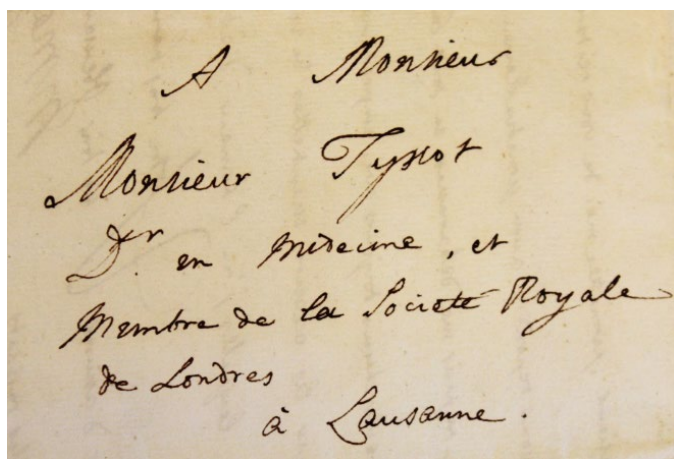 A Monsieur
Monsieur Tyssot
Dr. en Medecine, et
Membre de la Societé Royale
de Londres
à Lausanne.